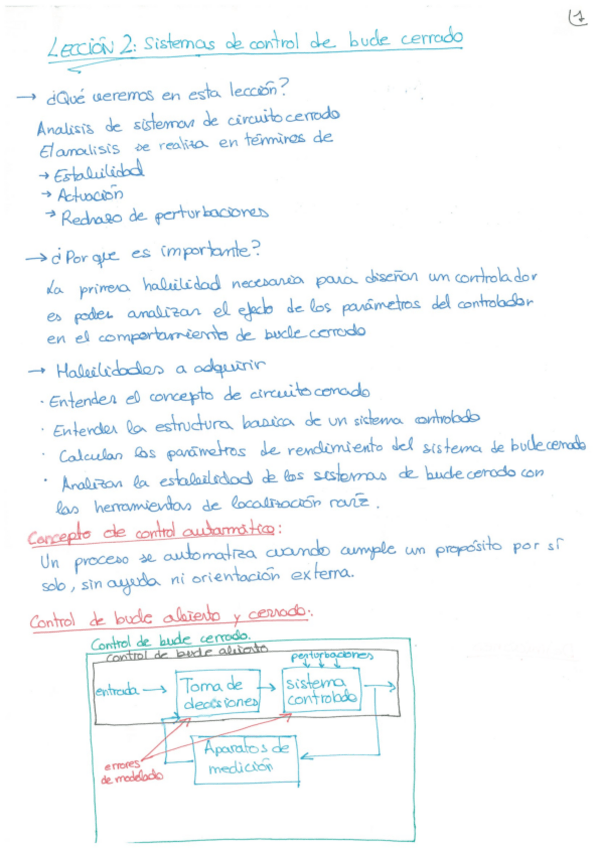 1
LECCIÓN 2: Sistemas de control de bucle cerrado
→ ¿Qué veremos en esta lección?
Analisis de sistemas de circuito cerrado
El analisis se realiza en términos de
→ Estabilidad
→ Actuación
→ Rechazo de perturbaciones
→ ¿Por que es importante?
La primera habilidad necesaria para diseñar un controlador
es poder analizar el efecto de los parámetros del controlador
en el comportamiento de bucle cerrado
→ Habilidades a adquirir
· Entender el concepto de circuito cerrado
· Entender la estructura basica de un sistema controlado
· Calcular los parámetros de rendimiento del sistema de bucle cerrado
· Analizar la estabilidad de los sistemas de bucle cerrado con
las herramientas de localización raíz.
Concepto de control automático:
Un proceso se automatiza cuando cumple un propósito por sí
solo, sin ayuda ni orientación externa.
Control de bucle abierto y cerrado:
Control de bucle cerrado.
control de bucle abierto
perturbaciones
entrada → Toma de decisiones → sistema controlado
Aparatos de
medición
errores
de modelado